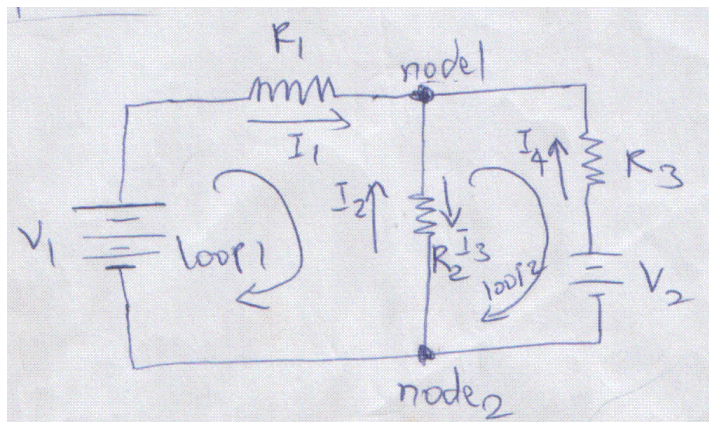 R1
node1
I1
I4
R3
I2
V1
loop1
R2
I3
loop2
V2
node2